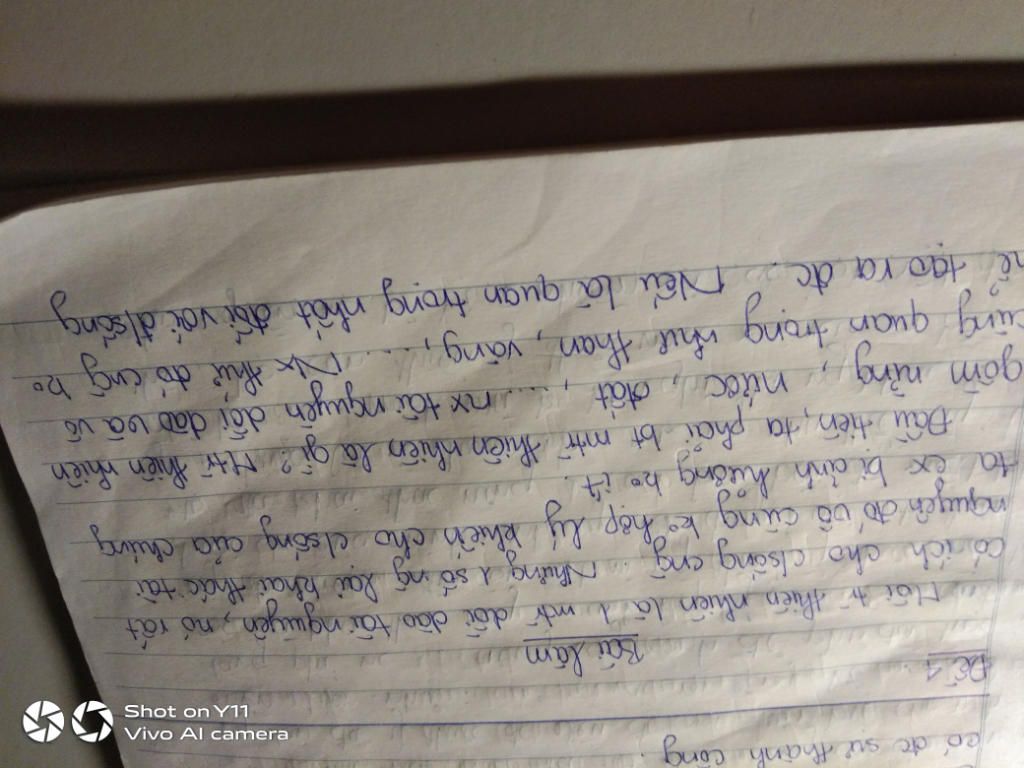 có đc sự thành công.
Đề 1.
Bài làm
Môi tr thiên nhiên là 1 mtr dồi dào tài nguyên, nó rất
có ích cho c/sống cng. Nhưng 1 số ng lại khai thác tài
nguyên đó vô cùng ko hợp lý khiến cho c/sống của chúng
ta cx bị ảnh hưởng ko ít.
Đầu tiên, ta phải bt mtr thiên nhiên là gì? Mtr thiên nhiên
gồm nắng, nước, đất, .... nx tài nguyên dồi dào và vô
cùng quan trọng như than, vàng, .... Nx thứ đó cng ko
tạo ra đc. Nếu là quan trọng nhất đối với đ/sống
Shot on Y11
Vivo AI camera